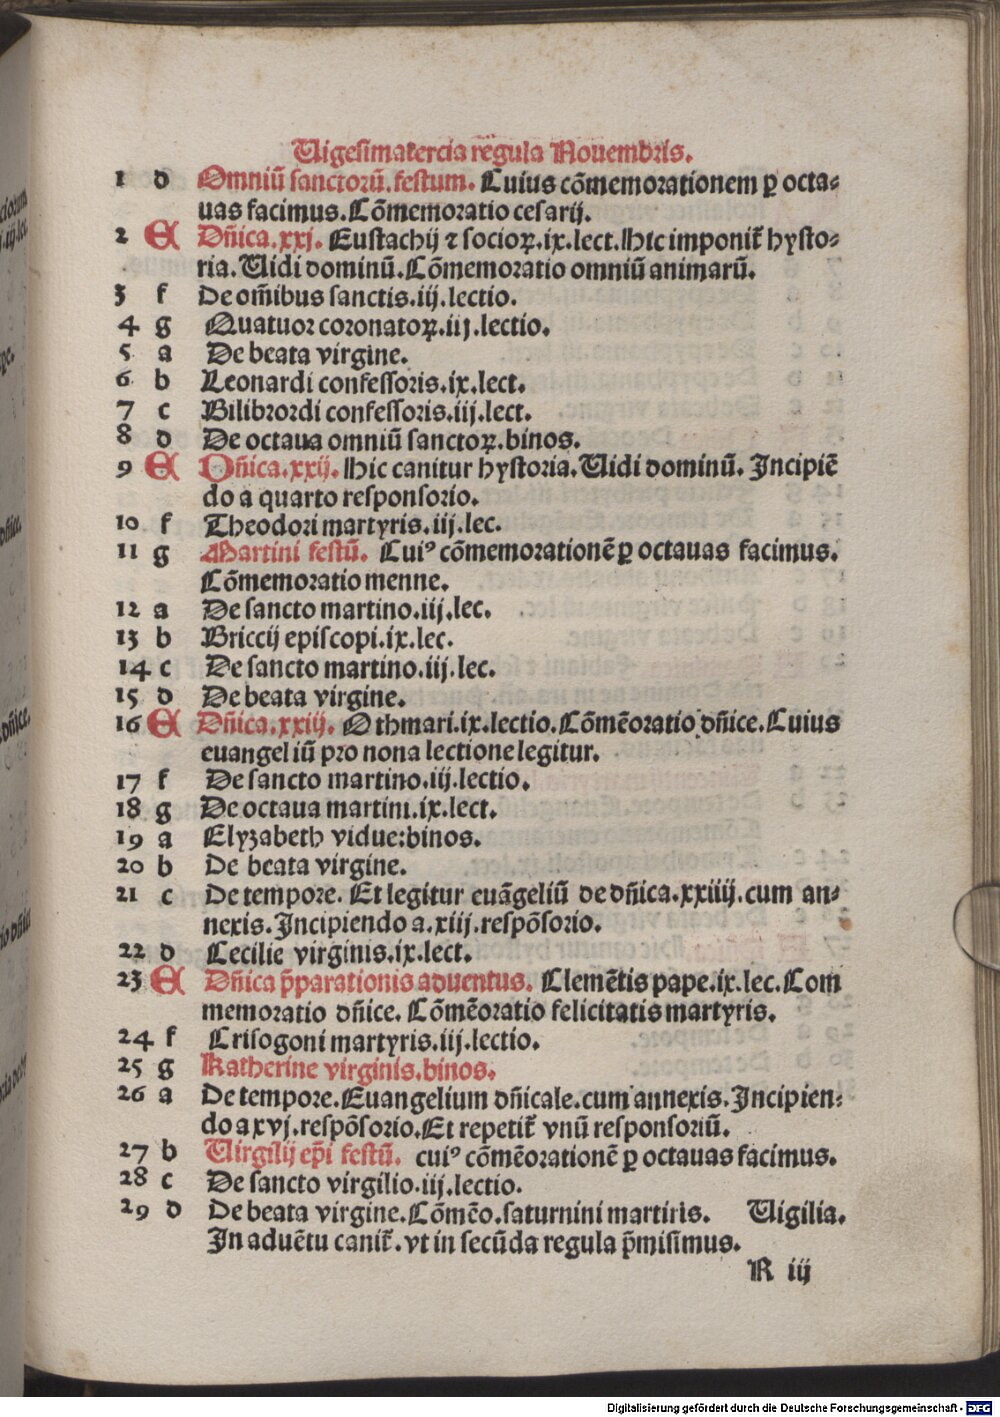 Uigesimatercia regula Nouembris.
1 d Omniū sanctorū. festum. Cuius cōmemorationem ꝑ octa⸗
uas facimus. Cōmemoratio cesarij.
2 E Dn̄ica. xxj. Eustachij ⁊ socioꝝ. ix. lect. Hic imponit̄ hysto⸗
ria. Uidi dominū. Cōmemoratio omniū animarū.
3 f De om̄ibus sanctis. iij. lectio.
4 g Quatuor coronatoꝝ. iij. lectio.
5 a De beata virgine.
6 b Leonardi confessoris. ix. lect.
7 c Bilibrordi confessoris. iij. lect.
8 d De octaua omniū sanctoꝝ. binos.
9 E Dn̄ica. xxij. Hic canitur hystoria. Uidi dominū. Incipiē
do a quarto responsorio.
10 f Theodori martyris. iij. lec.
11 g Martini festū. Cuiꝰ cōmemorationē ꝑ octauas facimus.
Cōmemoratio menne.
12 a De sancto martino. iij. lec.
13 b Briccij episcopi. ix. lec.
14 c De sancto martino. iij. lec.
15 d De beata virgine.
16 E Dn̄ica. xxiij. Othmari. ix. lectio. Cōmēoratio dn̄ice. Cuius
euangeliū pro nona lectione legitur.
17 f De sancto martino. iij. lectio.
18 g De octaua martini. ix. lect.
19 a Elyzabeth vidue: binos.
20 b De beata virgine.
21 c De tempore. Et legitur euāgeliū de dn̄ica. xxiiij. cum an⸗
nexis. Incipiendo a. xiij. respōsorio.
22 d Cecilie virginis. ix. lect.
23 E Dn̄ica p̄parationis aduentus. Clemētis pape. ix. lec. Com
memoratio dn̄ice. Cōmēoratio felicitatis martyris.
24 f Crisogoni martyris. iij. lectio.
25 g Katherine virginis. binos.
26 a De tempore. Euangelium dn̄icale. cum annexis. Incipien⸗
do a xvj. respōsorio. Et repetit̄ vnū responsoriū.
27 b Uirgilij ep̄i festū. cuiꝰ cōmēorationē ꝑ octauas facimus.
28 c De sancto virgilio. iij. lectio.
29 d De beata virgine. Cōmēo. saturnini martiris. Uigilia.
In aduētu canit̄. vt in secūda regula p̄misimus.
R iij
Digitalisierung gefördert durch die Deutsche Forschungsgemeinschaft - DFG